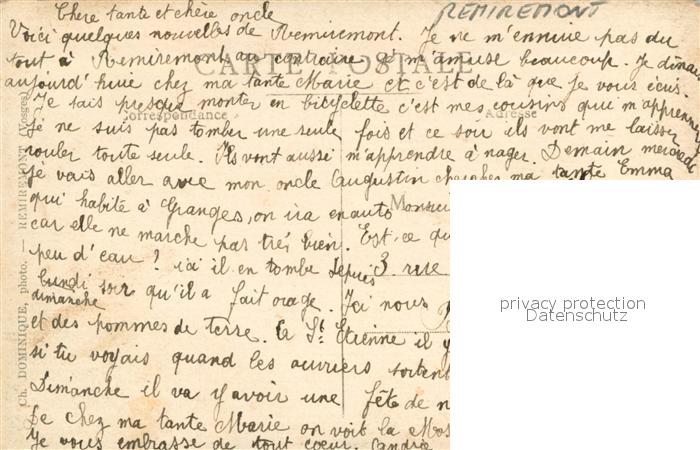 REMIREMONT
Chere tante et chère oncle
Voici quelques nouvelles de Remiremont. Je ne m'ennuie pas du
tout à Remiremont au contraire je m'amuse beaucoup. Je dîne
CARTE POSTALE
aujourd'huie chez ma tante Marie et c'est de là que je vous écris.
Je sais presque monter en bicyclette c'est mes cousins qui m'apprennent
Correspondance
Adresse
Je ne suis pas tomber une seule fois et ce soir ils vont me laisser
rouler toute seule. Ils vont aussi m'apprendre à nager. Demain mercredi
je vais aller avec mon oncle Augustin chercher ma tante Emma
qui habite à Granges, on ira en auto
Monsieur
car elle ne marche pas très bien. Est-ce qu
peu d'eau? ici il en tombe depuis
3. rue
lundi soir qu'il a fait orage. Ici nous
dimanche
et des pommes de terre. le St. Etienne il y
si tu voyais quand les ouvriers sortent
Dimanche il va y avoir une fête de n
De chez ma tante Marie on voit la Mos
Je vous embrasse de tout coeur. Candré
Ch. DOMINIQUE, photo. — REMIREMONT (Vosges)
privacy protection
Datenschutz